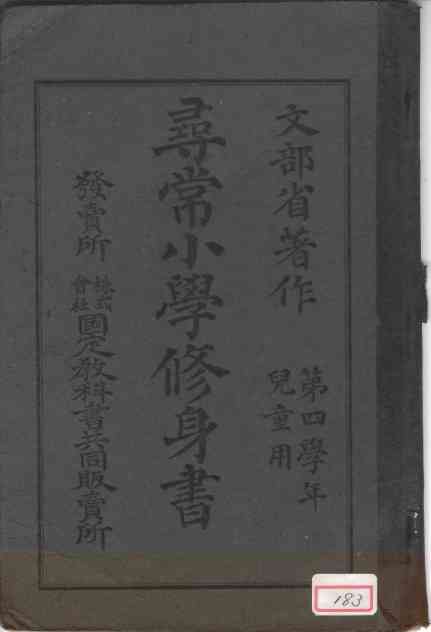 文部省著作
第四學年
兒童用
尋常小學修身書
發賣所
株式
會社
國定教科書共同販賣所
183